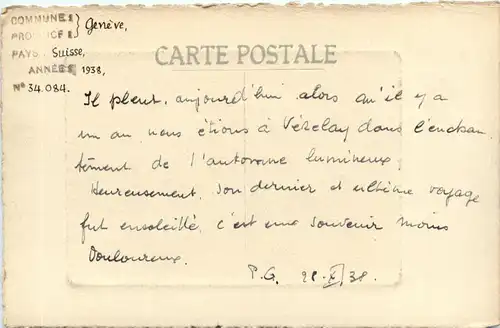 COMMUNE } Genève,
PROVINCE }
CARTE POSTALE
PAYS Suisse,
ANNÉE 1938,
N° 34.084.
Il pleut, aujourd'hui alors qu'il y a
un an nous étions à Vézelay dans l'enchan
tement de l'automne lumineux.
Heureusement, son dernier et ultime voyage
fut ensoleillé, c'est une souvenir moins
douloureux.
P.G. 28.X.38.